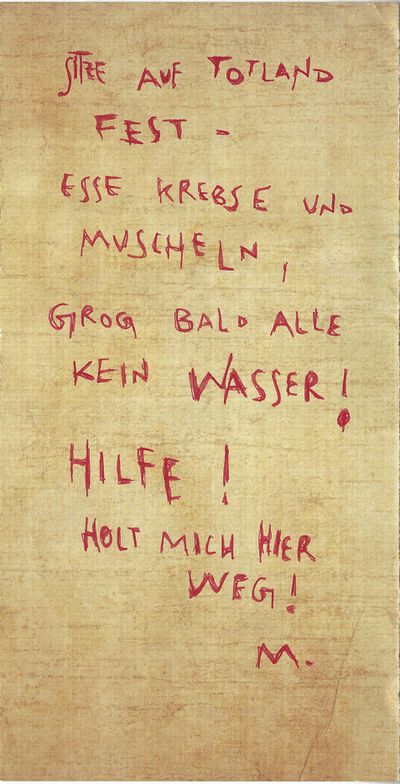 SITZE AUF TOTLAND
FEST -
ESSE KREBSE UND
MUSCHELN,
GROG BALD ALLE
KEIN WASSER!
HILFE!
HOLT MICH HIER
WEG!
M.